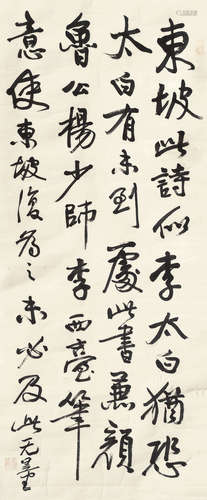 東坡此詩似李太白猶恐
太白有未到處此書兼顏
魯公楊少師李西臺筆
意使東坡復為之未必及此无量